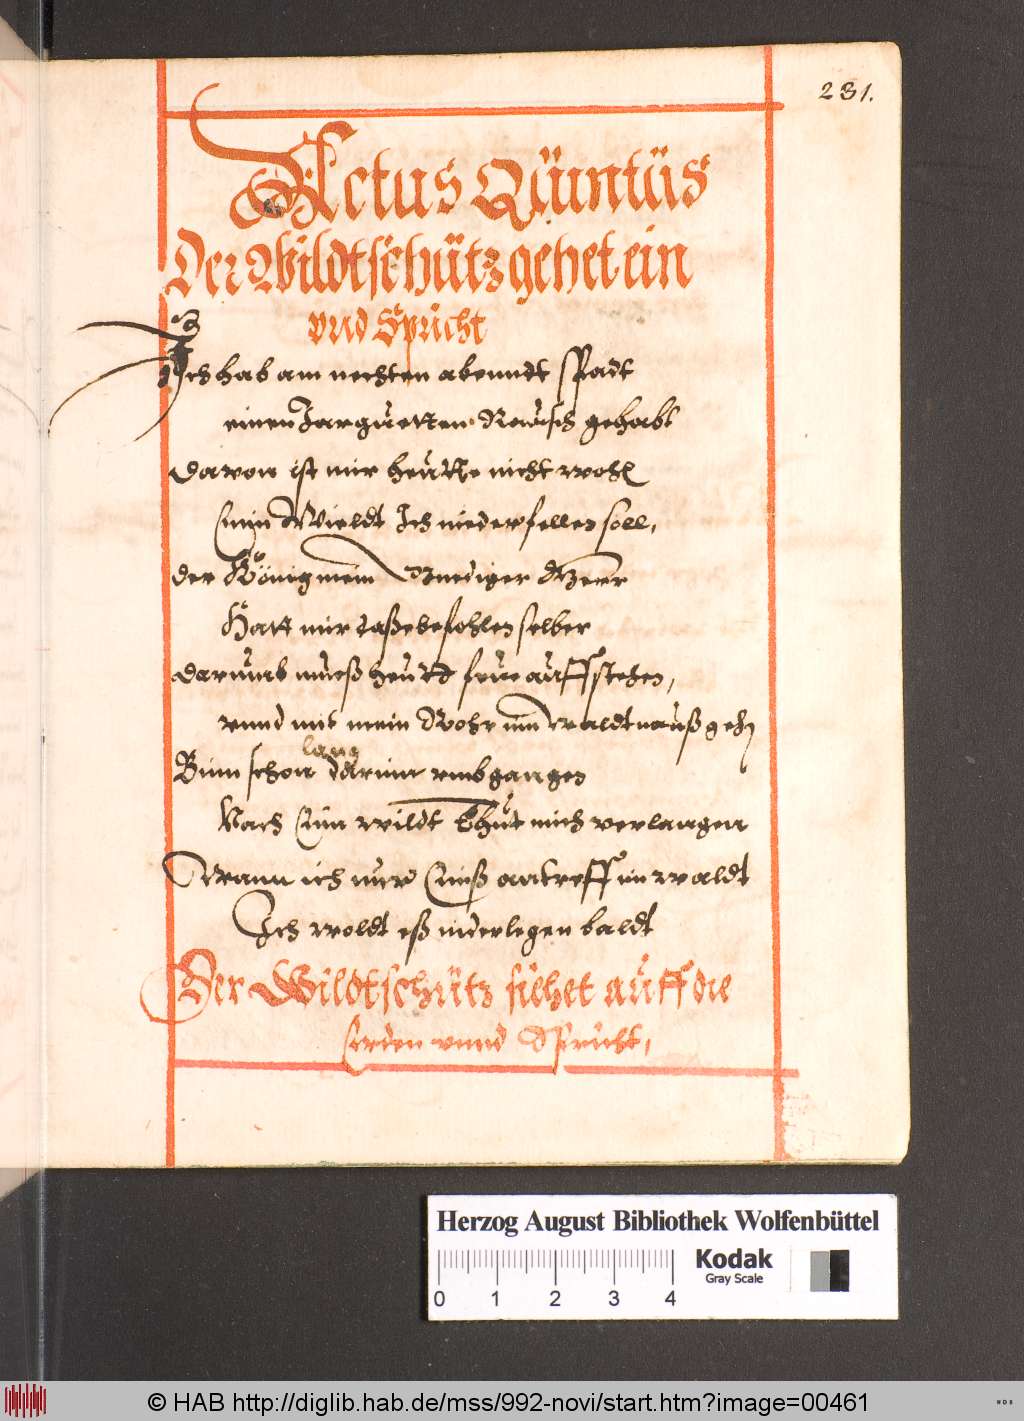 231.
Actus Quintus
Der Wildtschütz gehet ein
vnd Spricht
Ich hab am nechten abenndt spadt
einen starcken Rausch gehabt
davon ist mir heutte nicht wohl
Ein Wieldt Ich niederfellen soll,
der König mein Gnediger Herr
Hatt mir laße befohlen selber
darumb mueß heutt frue auffstehen,
vnnd mit mein Rohr inn waldt nauß gehn
Binn schon lang darinn vmbgangen
Nach Ein wildt thut mich verlangen
Wann ich nur Eineß antreff im waldt
Ich woldt eß niderlegen baldt
Der Wildtschütz siehet auff die
Erden vnnd Spricht,
Herzog August Bibliothek Wolfenbüttel
Kodak
Gray Scale
0 1 2 3 4
© HAB http://diglib.hab.de/mss/992-novi/start.htm?image=00461